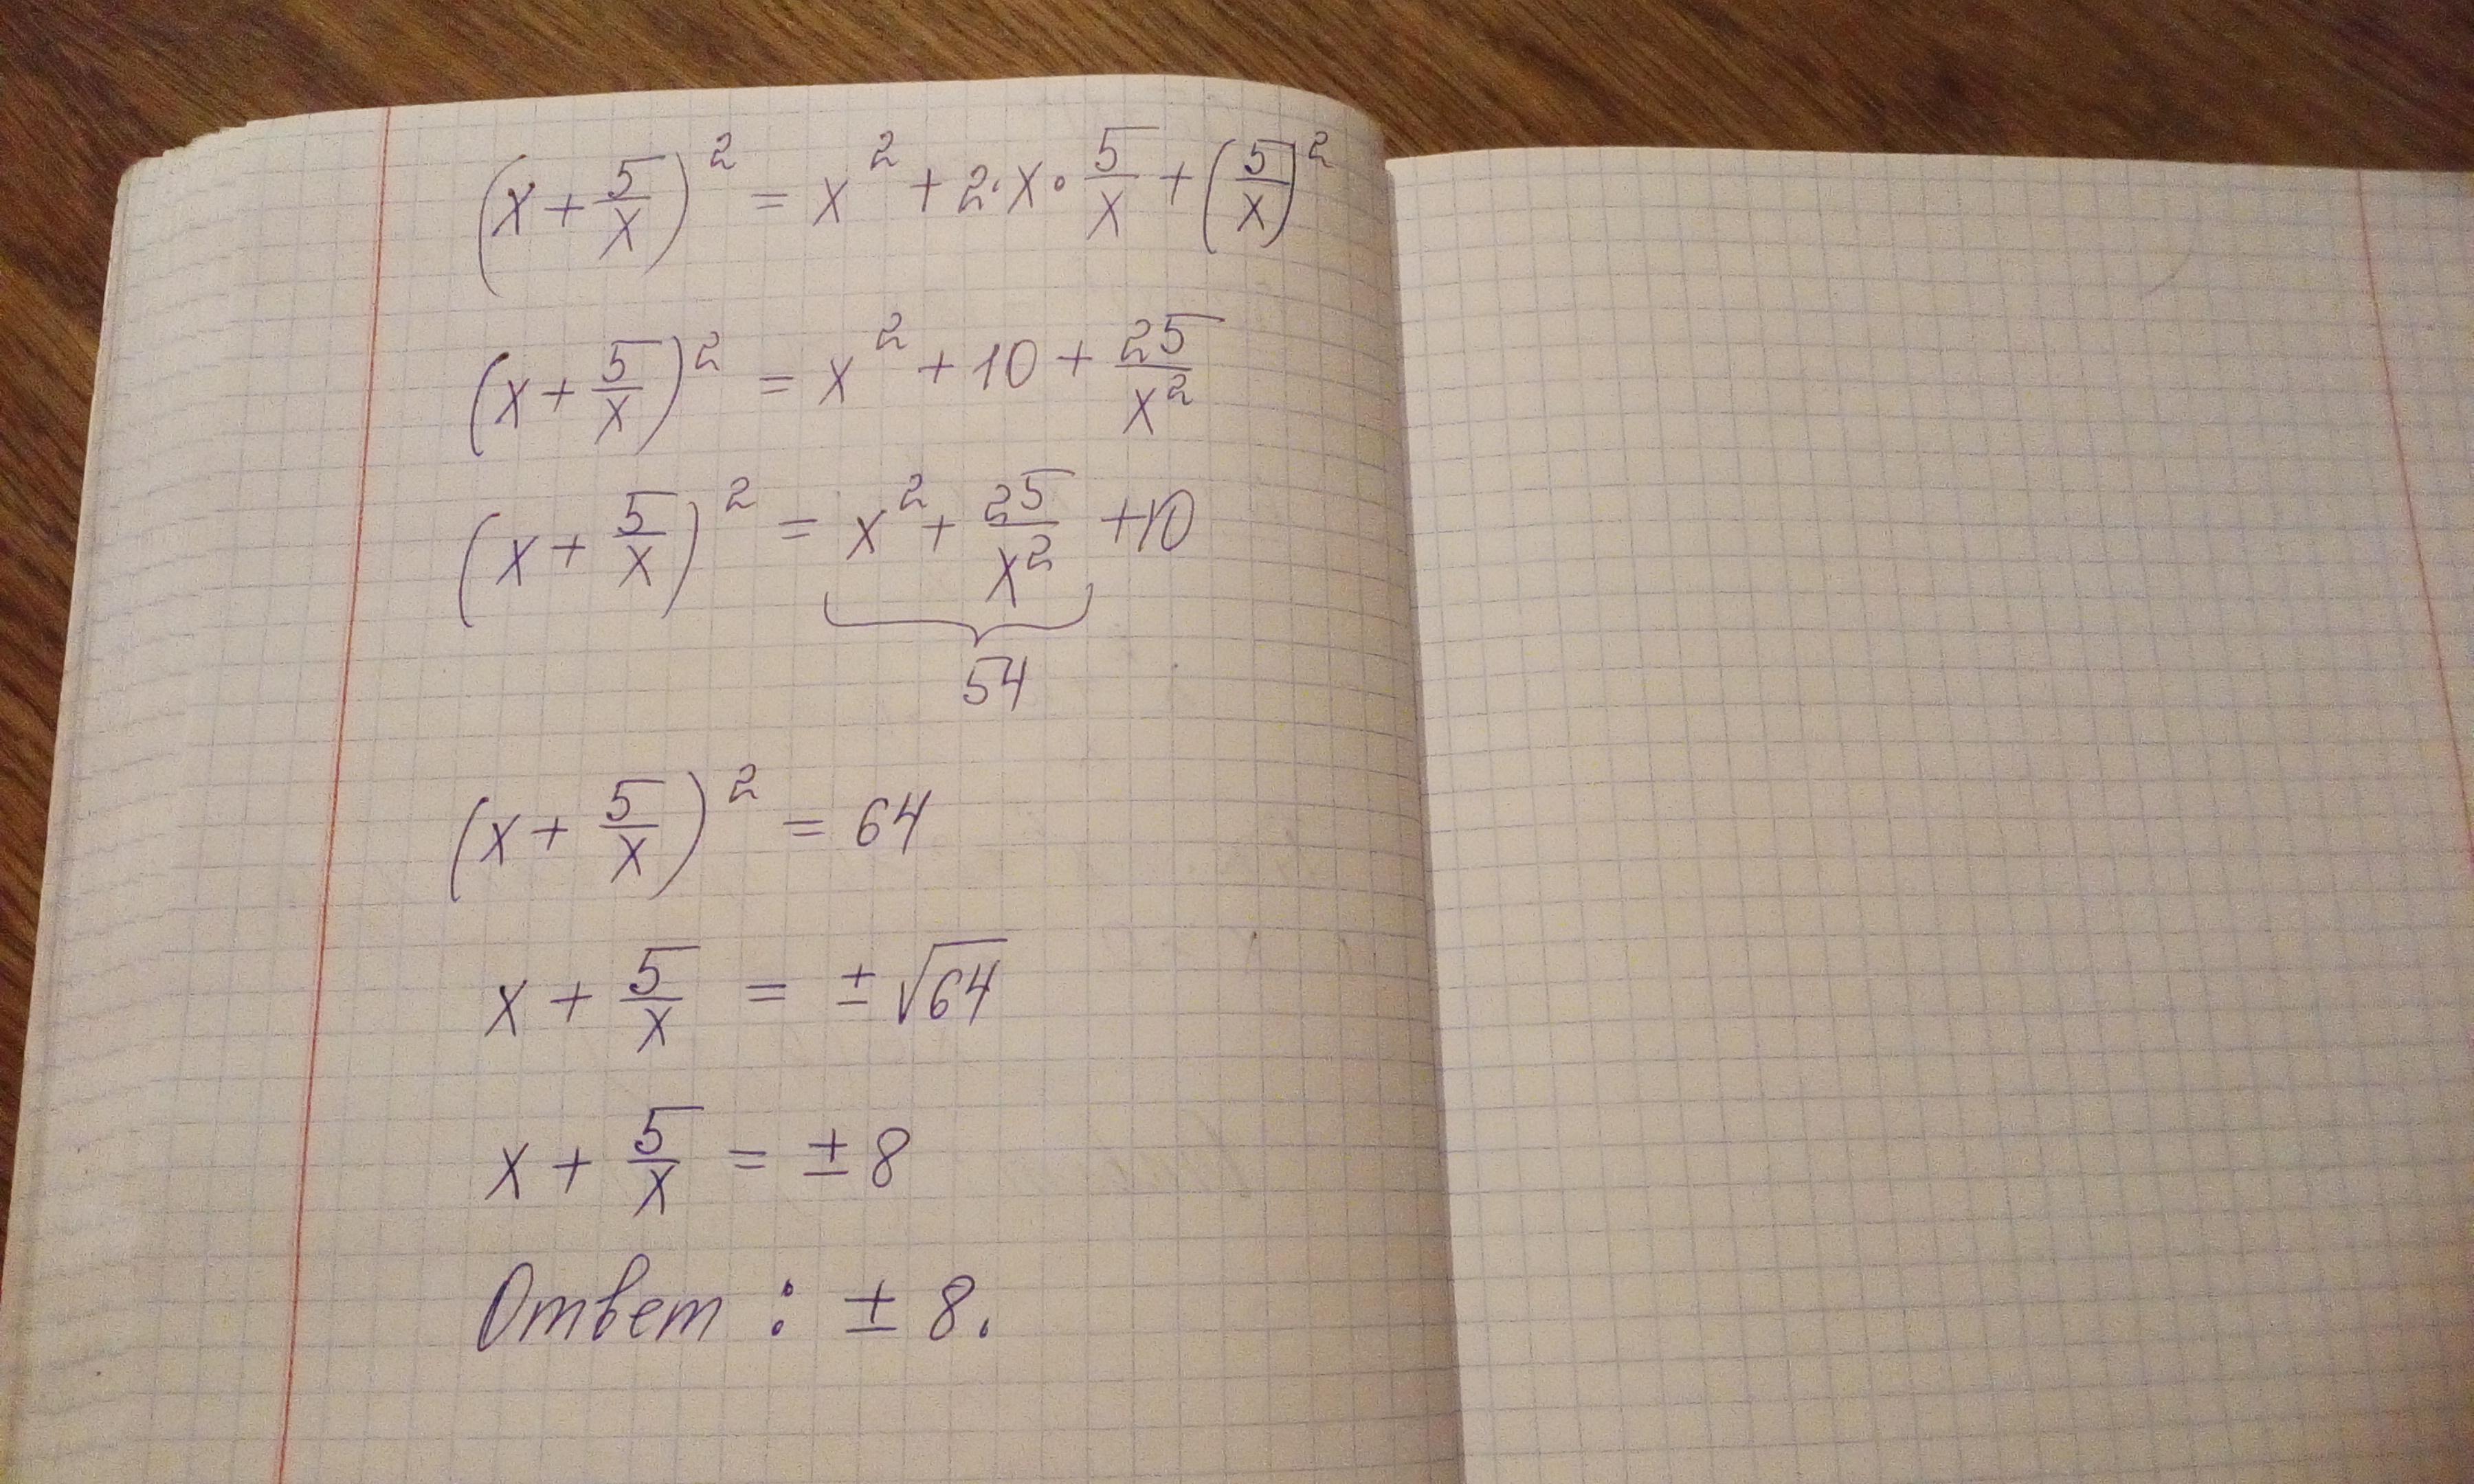 (x + 5/x)² = x² + 2·x· 5/x + (5/x)²
(x + 5/x)² = x² + 10 + 25/x²
(x + 5/x)² = x² + 25/x² + 10
54
(x + 5/x)² = 64
x + 5/x = ± √64
x + 5/x = ± 8
Ответ : ± 8.